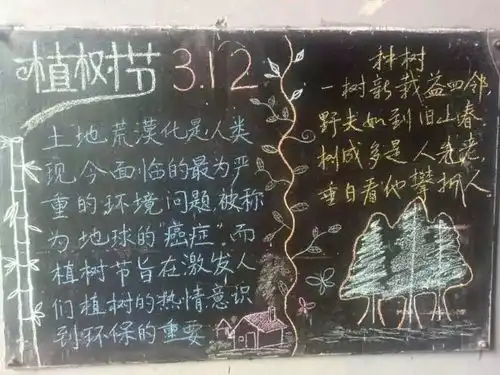 植树节 3.12
土地荒漠化是人类
现今面临的最为严
重的环境问题,被称
为地球的"癌症".而
植树节旨在激发人
们植树的热情.意识
到环保的重要.
种树
一树新栽益四邻,
野夫如到旧山春
树成多是人先老,
垂白看他攀折人